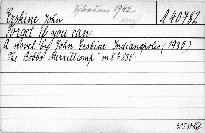 Erskine John 140782
Forget if you can
A novel by John Erskine Indianapolis (1935)
The Bobbs Merrill Comp m 8° 235